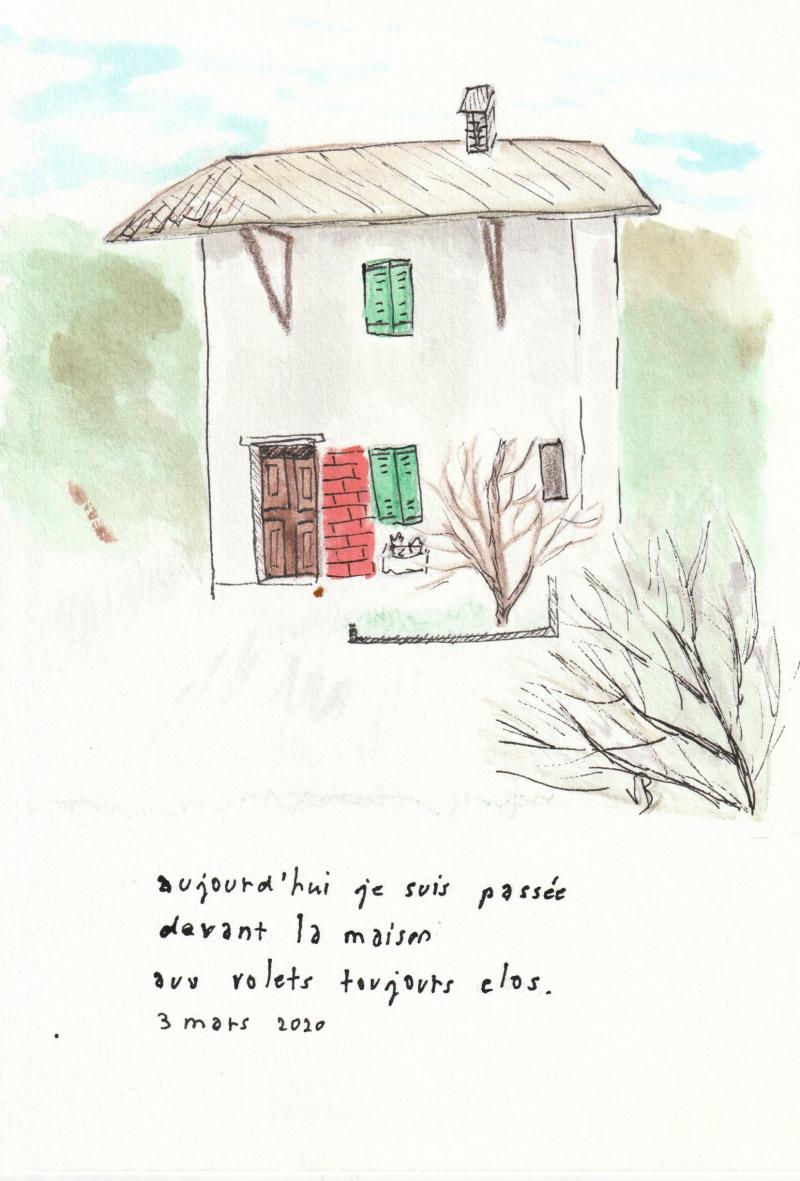 VB
aujourd'hui je suis passée
devant la maison
aux volets toujours clos.
3 mars 2020